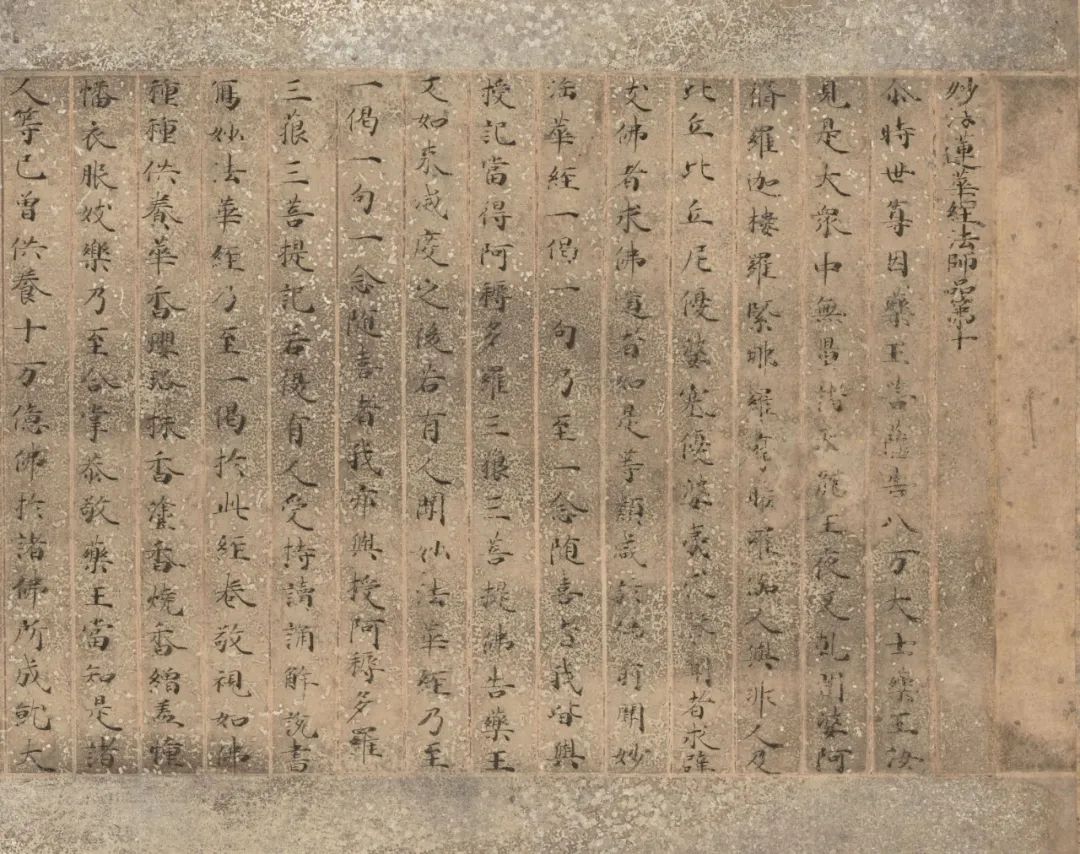 妙法蓮華經法師品第十
尒時世尊因藥王菩薩告八万大士藥王汝
見是大衆中無量諸天龍王夜叉乹闥婆阿
脩羅迦樓羅緊那羅摩睺羅伽人與非人及
比丘比丘尼優婆塞優婆夷求聲聞者求辟
支佛者求佛道者如是等類咸於佛前聞妙
法華經一偈一句乃至一念随喜者我皆與
授記當得阿耨多羅三藐三菩提佛告藥王
又如来滅度之後若有人聞妙法華經乃至
一偈一句一念随喜者我亦與授阿耨多羅
三藐三菩提記若復有人受持讀誦解說書
寫妙法華經乃至一偈於此經卷敬視如佛
種種供養華香瓔珞抹香塗香燒香繒蓋幢
幡衣服妓樂乃至合掌恭敬藥王當知是諸
人等已曾供養十万億佛於諸佛所成就大